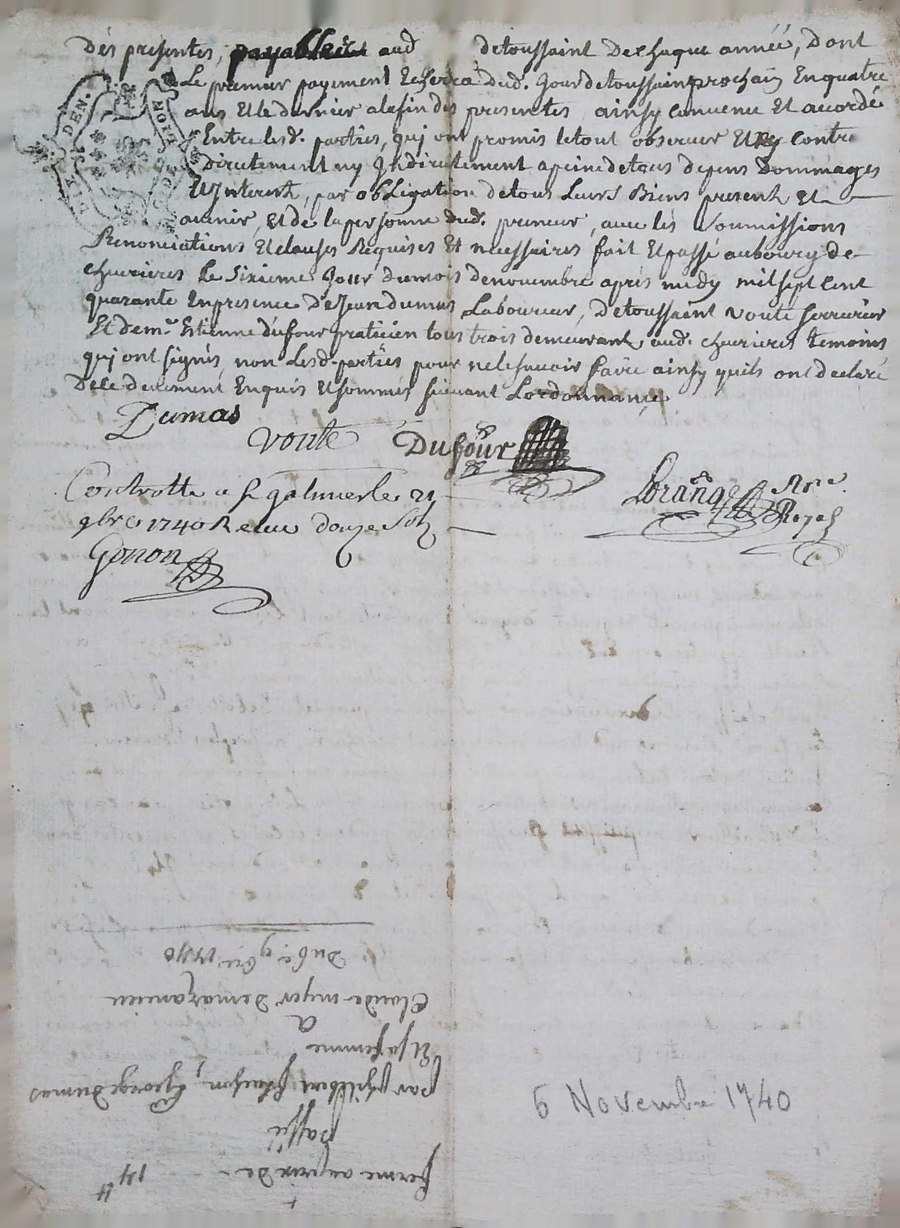 dés presentes, payables aud detoussaint de chaque année, dont
Le premier payement Echerra dud. Jour detoussaint prochain En quatre
ans Et le dernier alafin des presentes, ainsy convenu Et accordé
Entre lesd. parties, qui ont promis letout observer Et ny contre
Directement ny Indirectement apeine detous depens Dommages
Et Interests, par obLigation detous Leurs Biens present Et
avenir, Et de lapersonne dud. preneur, avec les Soumissions
Renonciations Et clauses Requises Et necessaires fait Et passé aubourg de
chevrieres Le Sixieme Jour dumois denovembre aprés midy mil sept cent
quarante Enpresence De Jean dumas Laboureur, detoussaint voute serrurier
Et de mr. Etienne dufour praticien tous trois demeurant aud. chevrieres temoins
qui ont signés, non Lesd. parties pour nelesavoir faire ainsy quils ont declaré
Dece deuement Enquis Et sommés suivant Lordonnance
Dumas
voute Dufour
Lorange Nre.
Royal
Controlle a St galmier le 21
9bre 1740 Receu douze Sols
Gonon
DEN.
LION
6 Novembre 1740
ferme au prix de 14#
passée
par George dumas
Et sa femme
a
Claude
Du 6e 9bre 1740